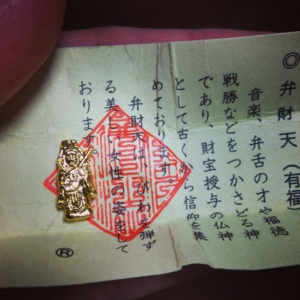 ◎弁財天(有福
音楽、弁舌の才や福徳
戦勝などをつかさどる神
であり、財宝授与の仏神
として古くから信仰を集
めております。
弁財天は、びわを弾ず
る美しい女性の姿をして
おります。
®